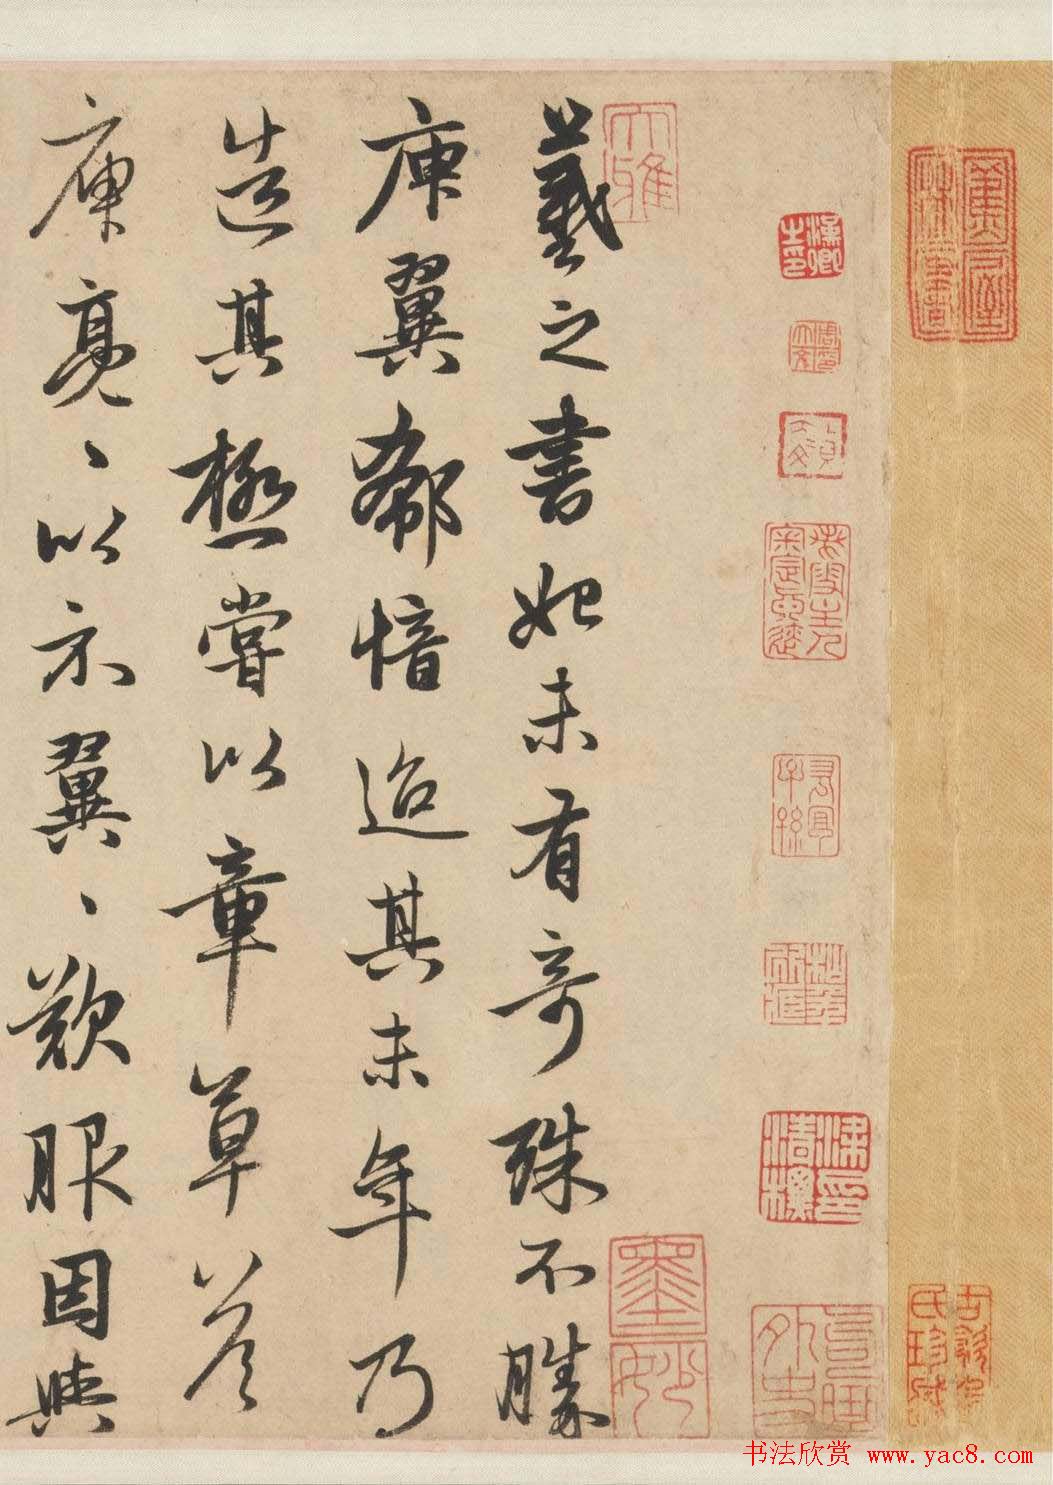 羲之書始未有奇殊不勝
庾翼郗愔迨其末年乃
造其極嘗以章草答
庾亮、以示翼、歎服因與
大雅
墨妙
书法欣赏 www.yac8.com